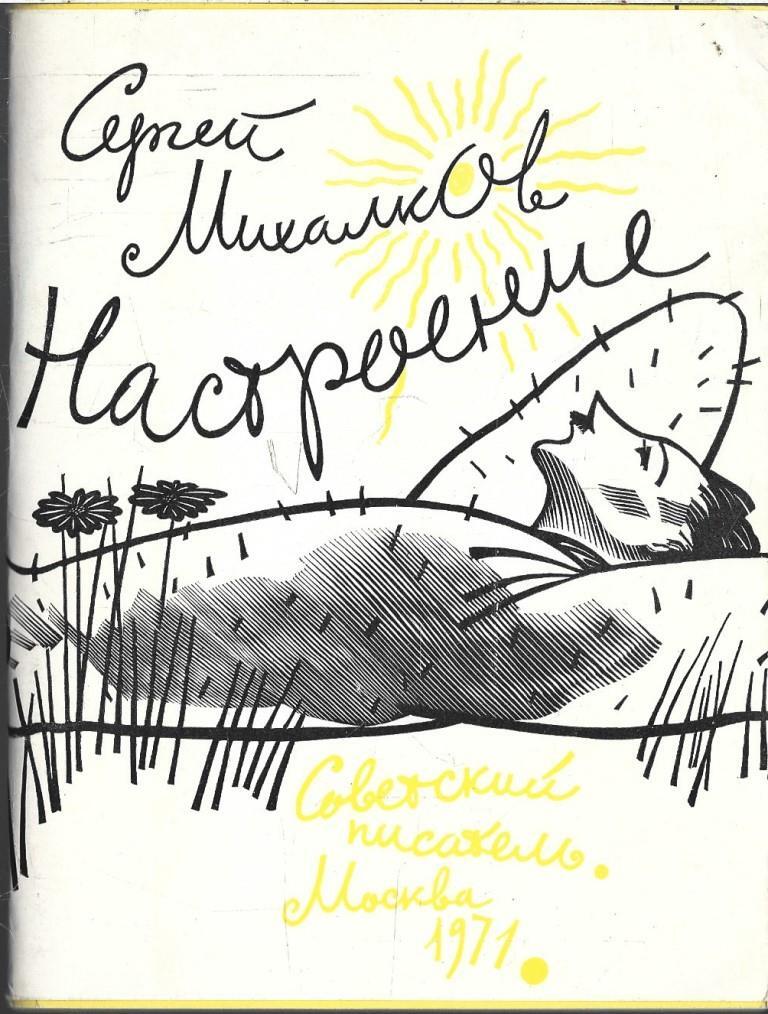 Сергей
Михалков
Настроение
Советский
писатель.
Москва
1971.